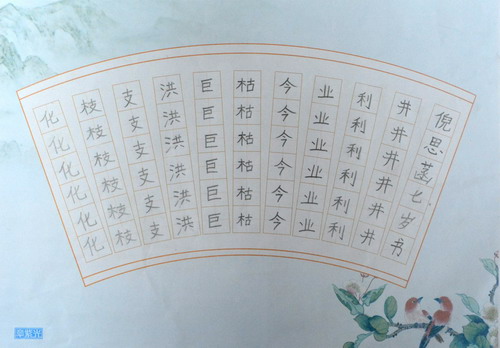 化化化化化化
枝枝枝枝枝枝
支支支支支支
洪洪洪洪洪洪
巨巨巨巨巨巨
枯枯枯枯枯枯
今今今今今今
业业业业业业
利利利利利利
井井井井井井
倪思菡七岁书